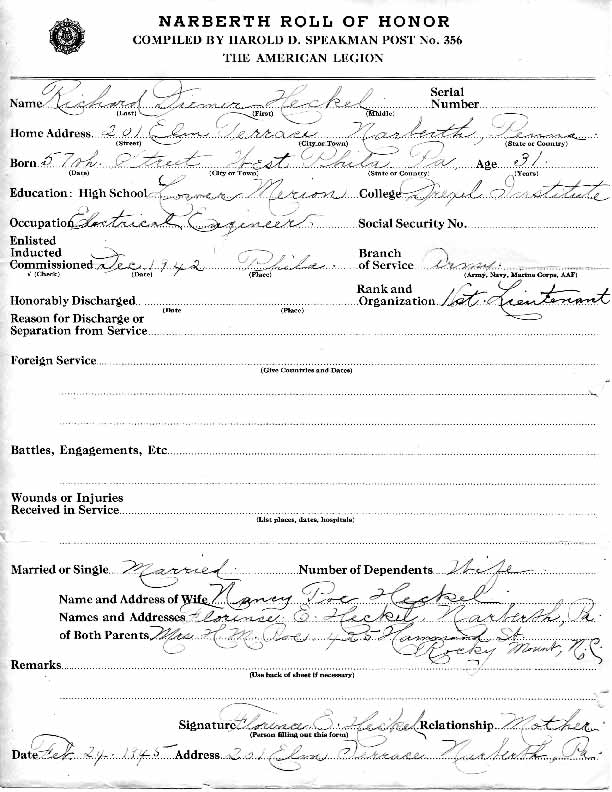 NARBERTH ROLL OF HONOR
COMPILED BY HAROLD D. SPEAKMAN POST No. 356
THE AMERICAN LEGION
Name Richard Diemer Heckel Serial Number
(Last) (First) (Middle)
Home Address 201 Elm Terrace Narberth, Penna
(Street) (City or Town) (State or Country)
Born 57th Street West Phila Pa Age 31
(Date) (City or Town) (State or Country) (Years)
Education: High School Lower Merion College Drexel Institute
Occupation Electrical Engineer Social Security No.
Enlisted
Inducted
Commissioned Dec. 1942 Phila. Branch of Service Army
√ (Check) (Date) (Place) (Army, Navy, Marine Corps, AAF)
Honorably Discharged Rank and Organization 1st. Lieutenant
(Date (Place)
Reason for Discharge or
Separation from Service
Foreign Service
(Give Countries and Dates)
Battles, Engagements, Etc
Wounds or Injuries
Received in Service
(List places, dates, hospitals)
Married or Single Married Number of Dependents Wife
Name and Address of Wife Nancy Poe Heckel
Names and Addresses Florence E. Heckel, Narberth, Pa
of Both Parents Mrs H.M. Poe, 425 Hammond St
Rocky Mount, N.C.
Remarks
(Use back of sheet if necessary)
Signature Florence E. Heckel Relationship Mother
(Person filling out this form)
Date Feb. 24. 1945 Address 201 Elm Terrace Narberth, Pa.